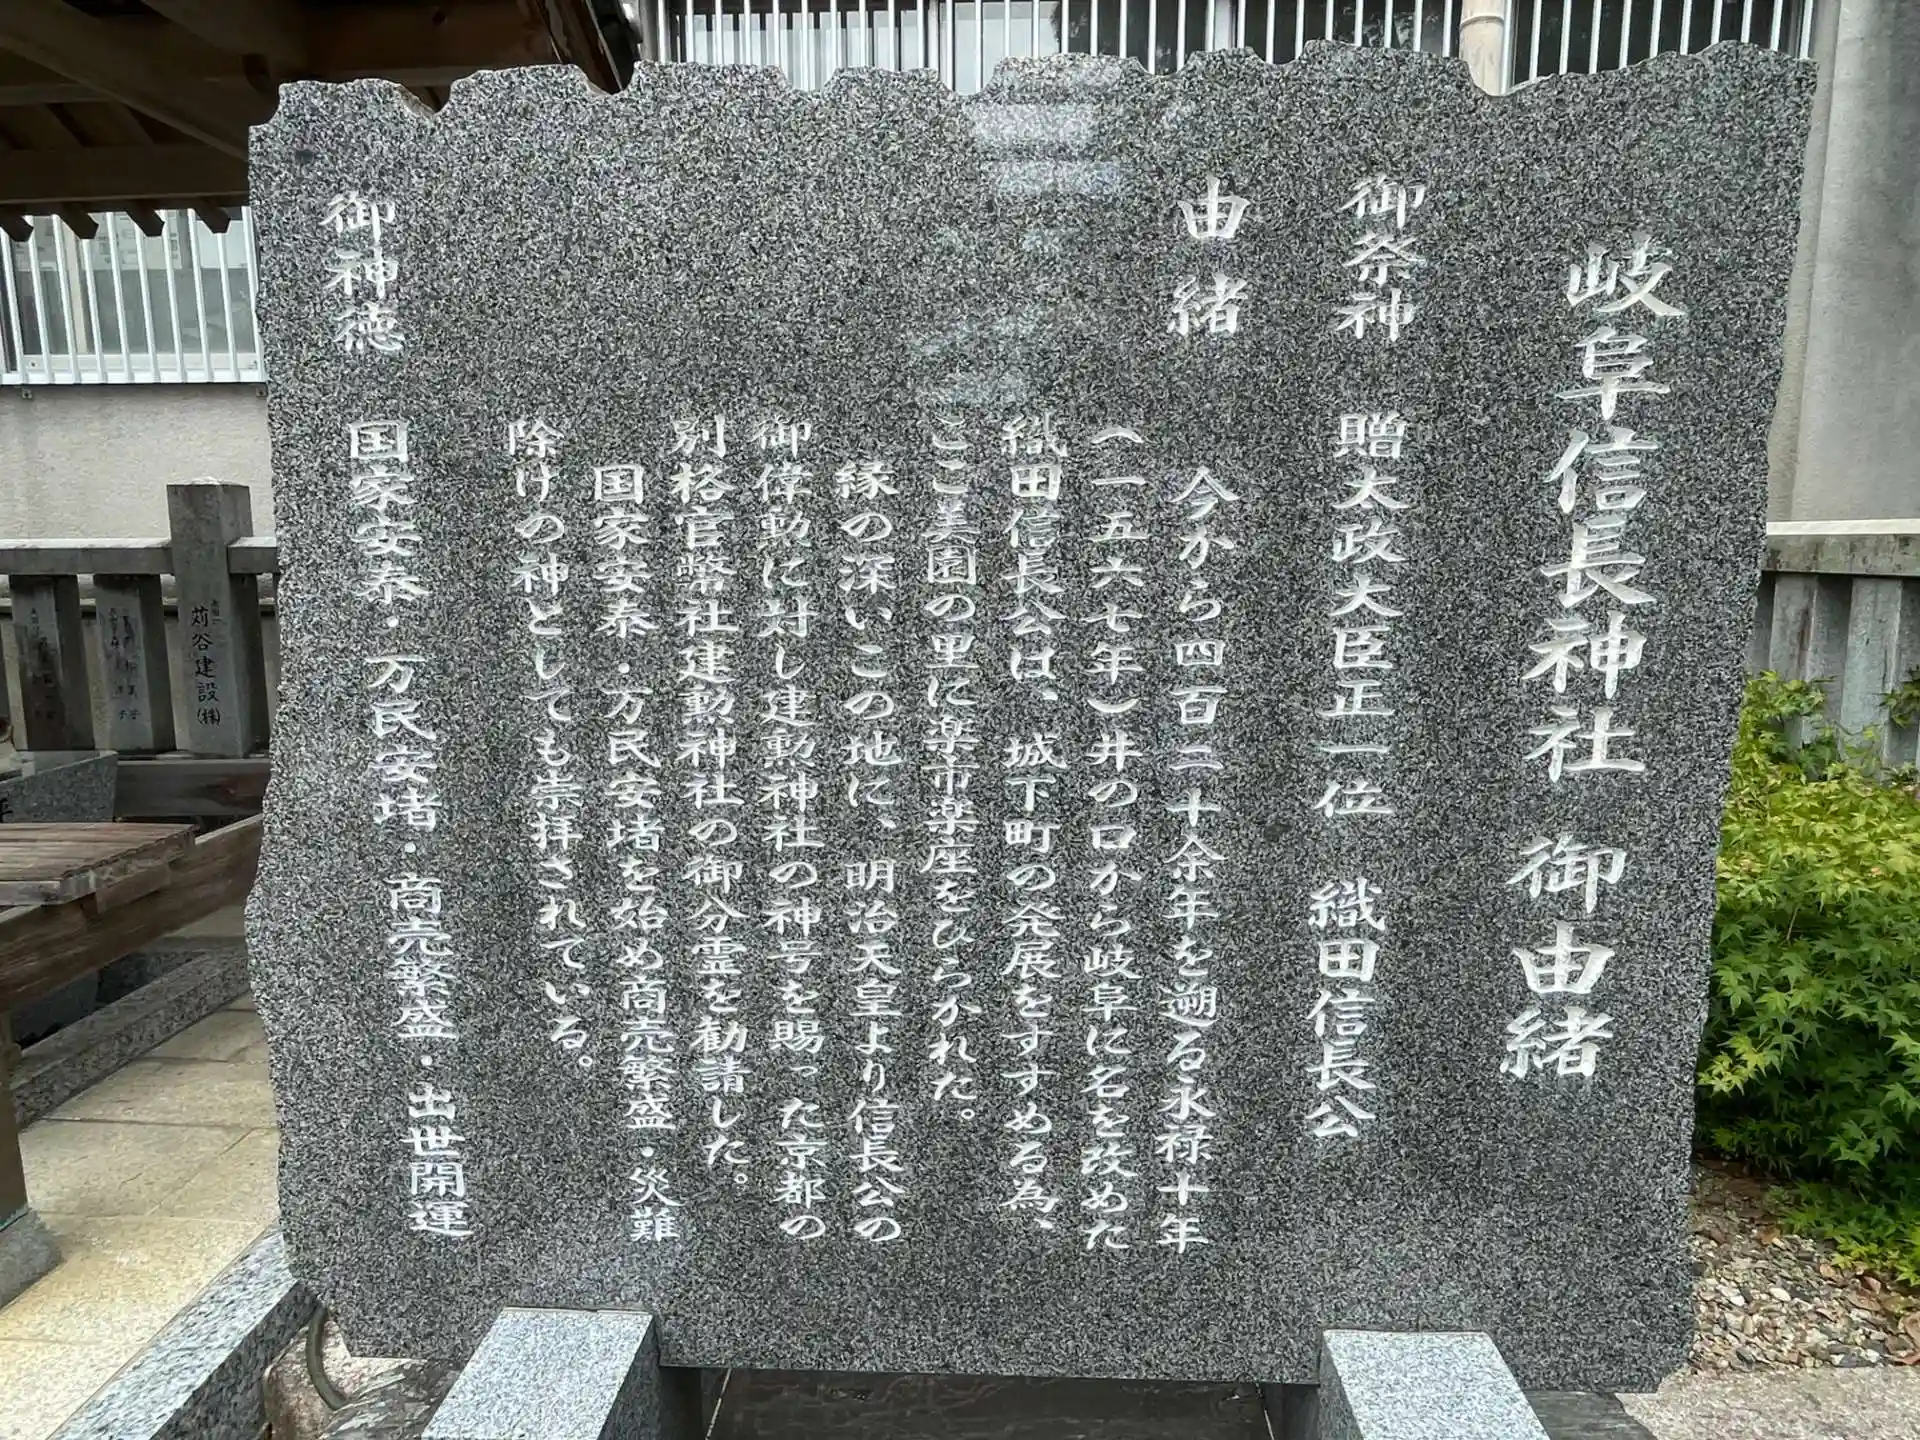 岐阜信長神社 御由緒
御祭神 贈太政大臣正一位 織田信長公
由緒 今から四百二十余年を遡る永禄十年
(一五六七年)井の口から岐阜に名を改めた
織田信長公は、城下町の発展をすすめる為、
ここ美園の里に楽市楽座をひらかれた。
縁の深いこの地に、明治天皇より信長公の
御偉勲に対し建勲神社の神号を賜った京都の
別格官幣社建勲神社の御分霊を勧請した。
国家安泰・万民安堵を始め商売繁盛・災難
除けの神としても崇拝されている。
御神徳 国家安泰・万民安堵・商売繁盛・出世開運
苅谷建設(株)